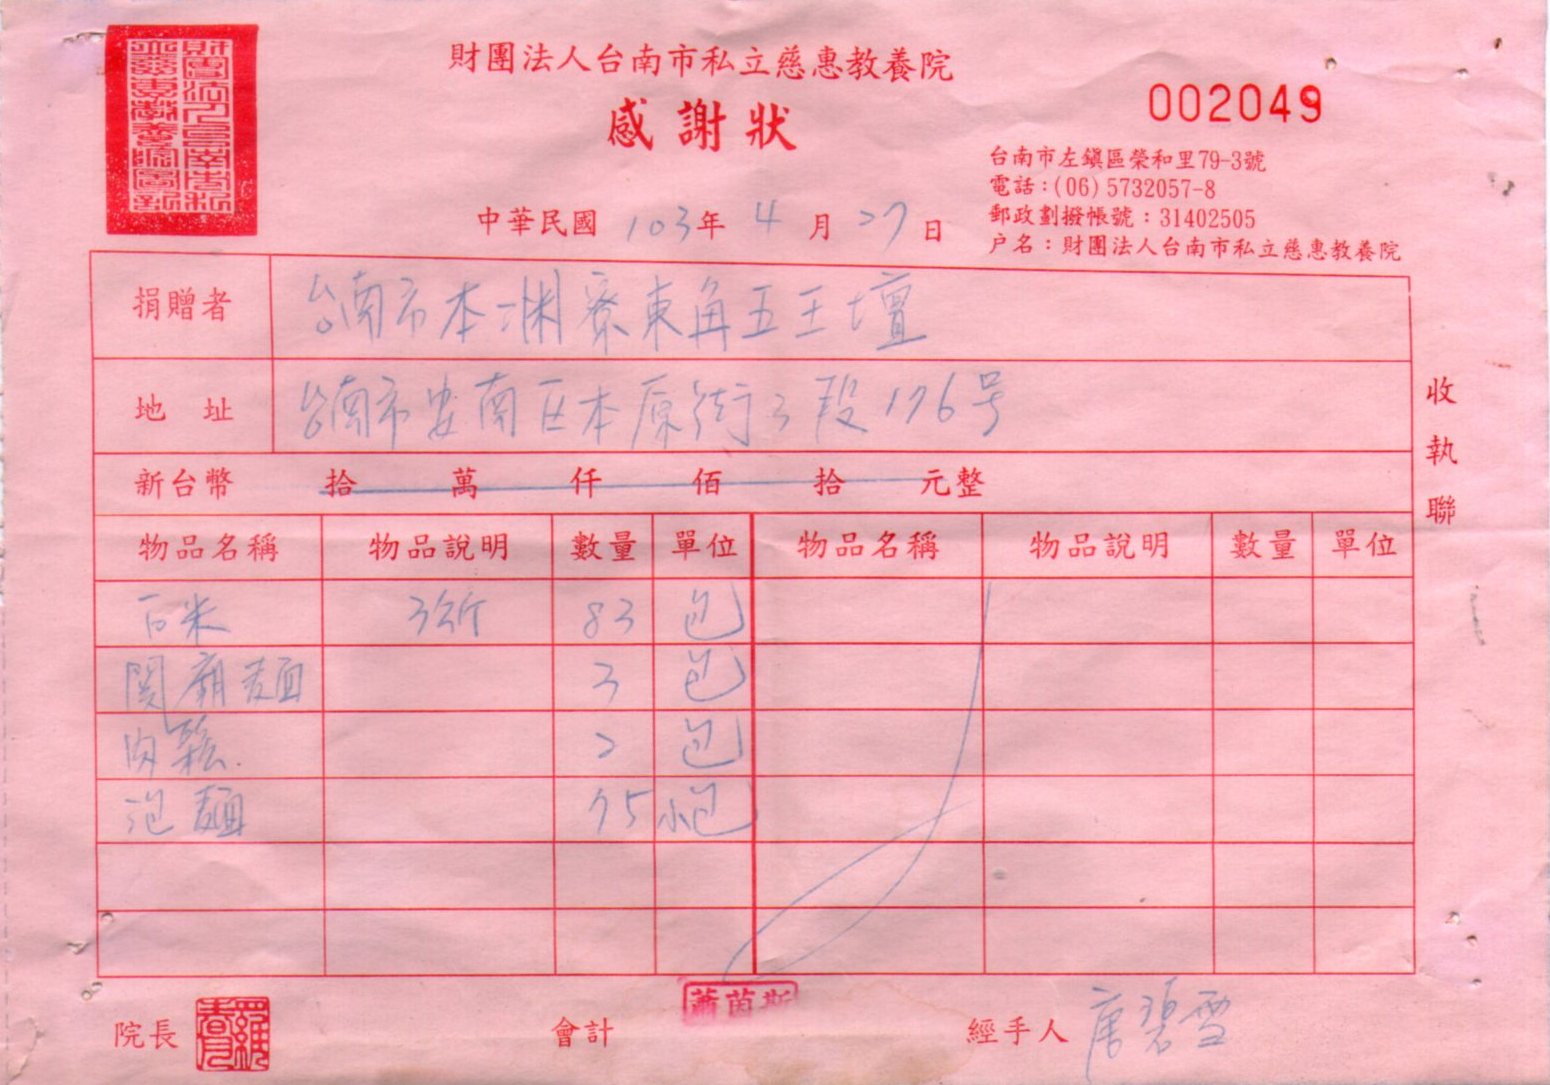 財團法人台南市私立慈惠教養院
感謝狀
002049
台南市左鎮區榮和里79-3號
電話：(06)5732057-8
郵政劃撥帳號：31402505
戶名：財團法人台南市私立慈惠教養院
中華民國 103年 4 月 27 日
捐贈者 台南市本渊寮東角五王壇
地 址 台南市安南区本原街3段176号
新台幣 拾 萬 仟 佰 拾 元整
物品名稱 物品說明 數量 單位 物品名稱 物品說明 數量 單位
白米 3斤 83 包
関廟麵 3 包
肉鬆 2 包
泡麵 75 小包
收執聯
院長 會計 蕭茵斯 經手人 唐碧雪